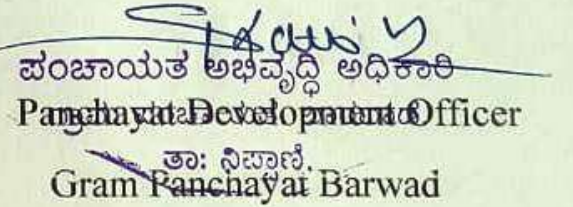 ಪಂಚಾಯತ ಅಭಿವೃದ್ಧಿ ಅಧಿಕಾರಿ
Panchayat Development Officer
ತಾ: ನಿಪ್ಪಾಣಿ.
Gram Panchayat Barwad